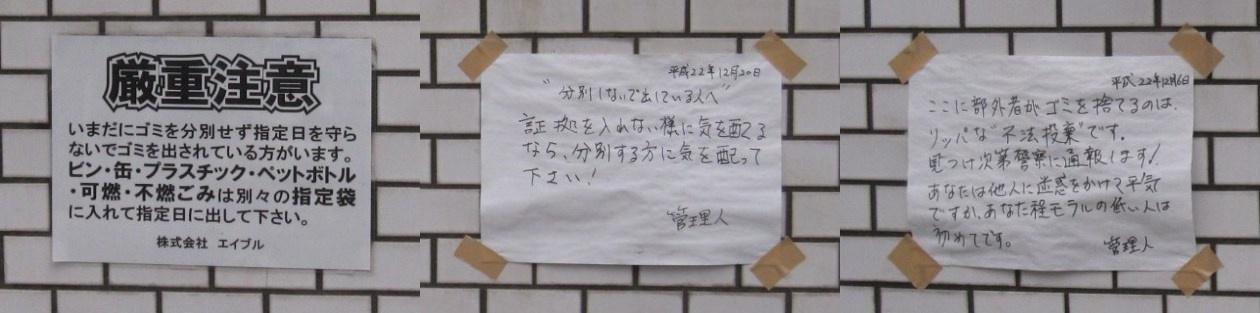 厳重注意
いまだにゴミを分別せず指定日を守ら
ないでゴミを出されている方がいます。
ビン・缶・プラスチック・ペットボトル
・可燃・不燃ごみは別々の指定袋
に入れて指定日に出して下さい。
株式会社 エイブル
平成22年12月20日
"分別しないで出している人へ"
証拠を入れない様に気を配てる
なら、分別する方に気を配って
下さい!
管理人
平成22年12月6日
ここに部外者がゴミを捨てるのは、
リッパな"不法投棄"です。
見つけ次第警察に通報します!
あなたは他人に迷惑をかけて平気
ですか、あなた程モラルの低い人は
初めてです。
管理人